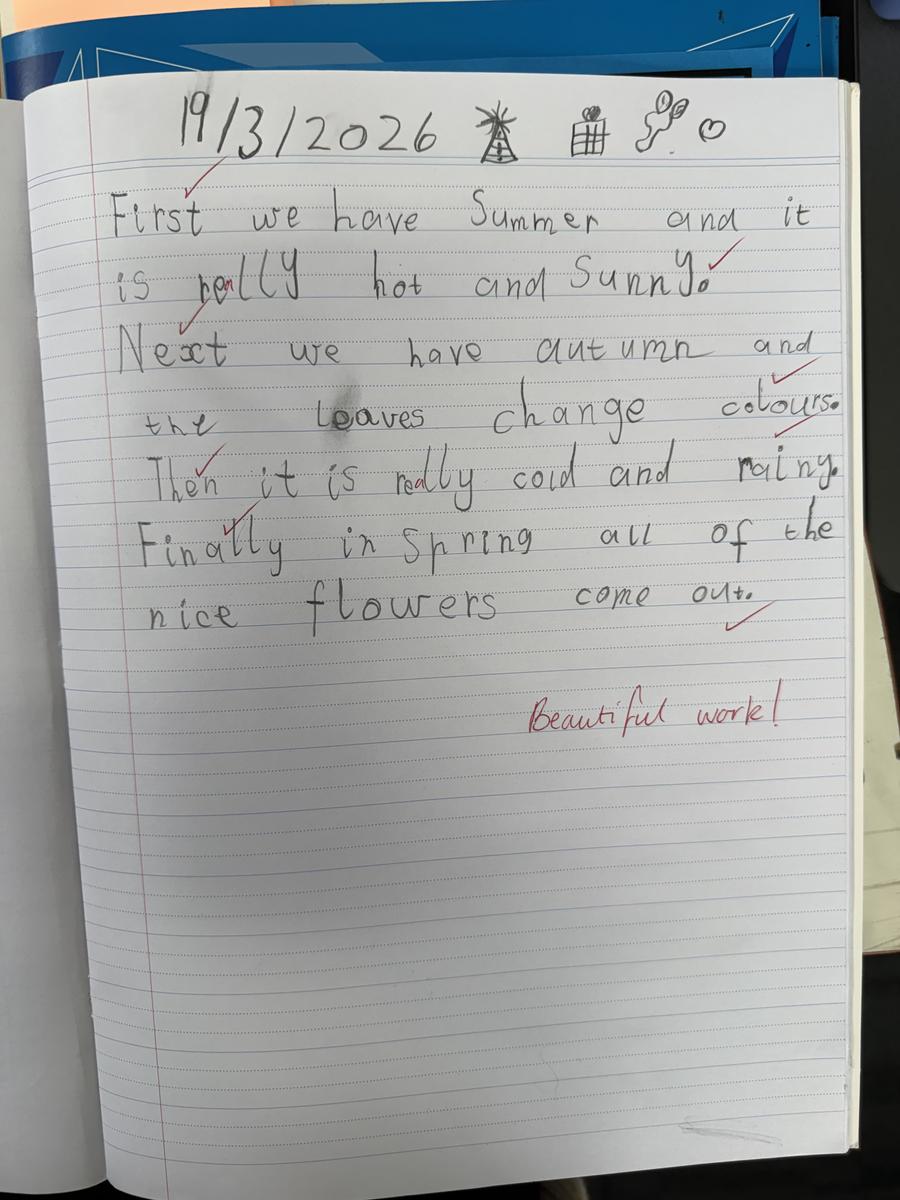 19/3/2026
First we have Summer and it
is really hot and Sunny.
Next we have autumn and
the leaves change colours.
Then it is really cold and rainy.
Finally in Spring all of the
nice flowers come out.
Beautiful work!